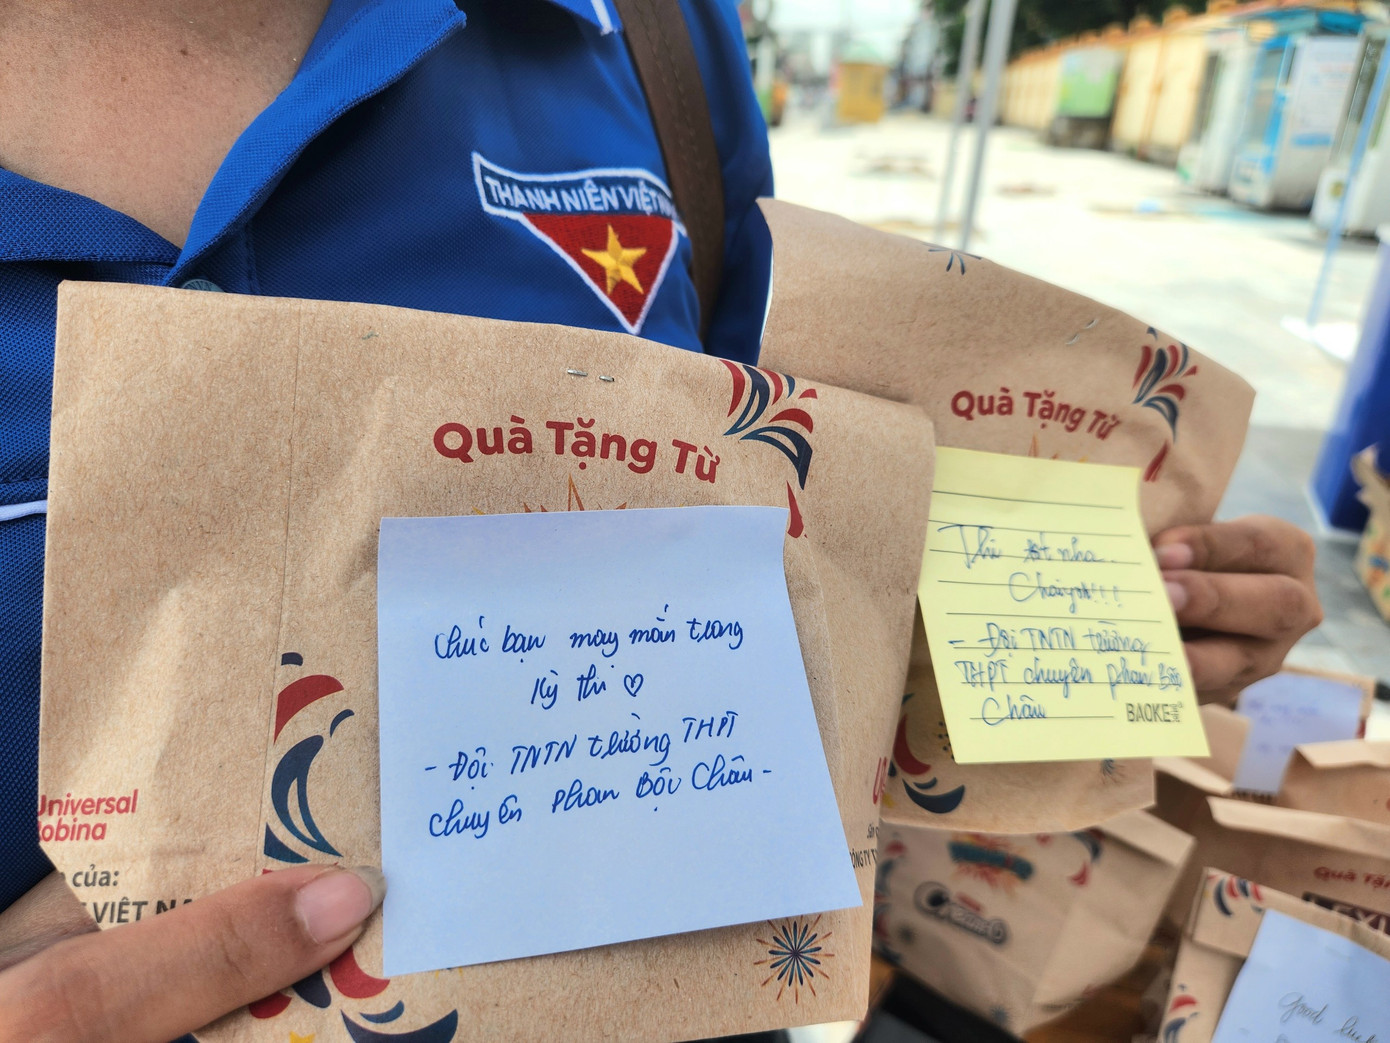 THANH NIÊN VIỆT
Quà Tặng Từ
Chúc bạn may mắn trong
kỳ thi ♡
- Đội TNTN trường THPT
chuyên Phan Bội Châu -
Universal
Robina
của:
VIỆT NA
Quà Tặng Từ
Thi tốt nha.
- Đội TNTN trường
THPT chuyên Phan Bội
Châu
BAOKE
Quà Tặ
Good luck